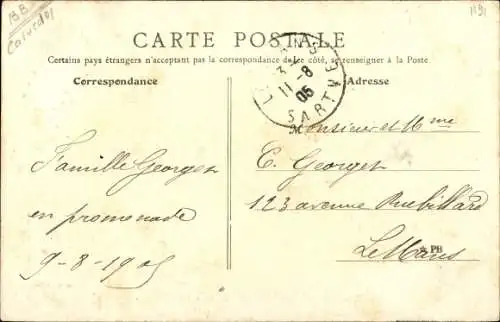 BB
Calvados
1191
CARTE POSTALE
Certains pays étrangers n'acceptant pas la correspondance de ce côté, se renseigner à la Poste
Correspondance
Adresse
LE MANS
3
11-8
05
SARTHE
Monsieur et Mme
E. Georges
123 avenue Rubillard
Le Mans
PB
Famille Georges
en promenade
9-8-1905